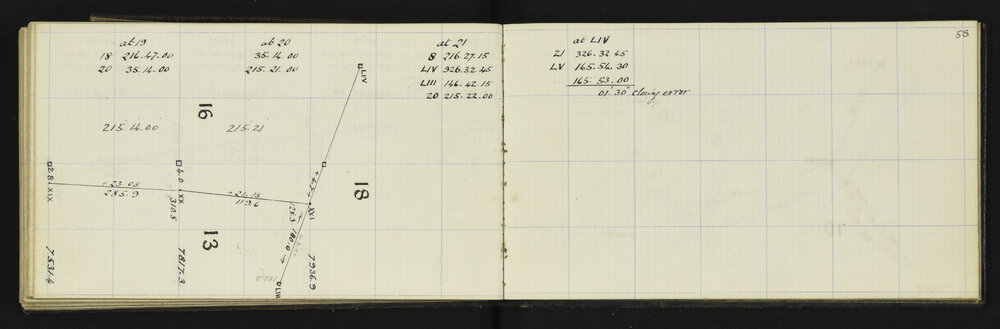 at 19
18 216.47.00
20 35.14.00
at 20
35.14.00
215.21.00
at 21
8 216.27.15
LIV 326.32.45
LIII 146.42.15
20 215.22.00
at LIV
21 326.32.45
LV 165.54.30
165.53.00
01' 30" closing error
58
16
215.14.00
215.21
LIV
18
2.8 XIX
23.05
285.9
4.0 XX
310.8
21.15
119.6
XXI
28.3
180.0
13
7531.4
7817.3
7936.9
LIII